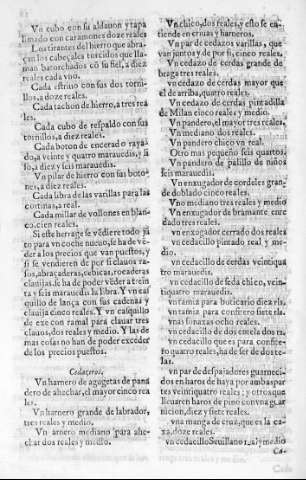 Vn cubo con su aldauon y tapa
limado con caramones doze reales
Los tirantes del hierro que abra-
çan los cabeçales torcidos que lla-
man batonchados cõ su fiel, a diez
reales cada vno.
Cada con sus dos torni-
llos, a doze reales.
Cada tachon de hierro, a tres rea
les.
Cada cubo de respaldo con sus
tornillos, a diez reales.
Cada boton de encerado o raya-
do, a veinte y quatro marauedis, y li
so, a diez y seis marauedis.
Vn pilar de hierro con sus boto-
nes, a diez reales.
Cada libra de las varillas para las
cortinas, a real.
Cada millar de vollones en blan-
co, cien reales.
Si este herrage se vẽdiere todo jũ
to para vn coche nueuo, se ha de vẽ-
der a los precios que van puestos, y
si se vendieren de por si clauos ra-
sos, abraçaderas, cebicas, roçaderas
clauijas, se ha de poder vẽder a trein
ta y seis marauedis la libra. Y vn cas
quillo de lança con sus cadenas y
clauija cinco reales. Y vn casquillo
de exe con ramal para clauar tres
clauos, dos reales y medio. Y las de
mas cosas no han de poder exceder
de los precios puestos.
Cedaçeros.
Vn harnero de agugetas de pana
dero de ahechar, el mayor cinco rea
les.
Vn harnero grande de labrador,
tres reales y medio.
Vn arnero mediano para ahe-
char dos reales y medio.
Vn chico, dos reales, y esto se en-
tiende en cruzas y harneros.
Vn par de cedazos varillas, que
van juntos y de por si, cinco reales,
Vn cedazo de cerdas grande de
braga tres reales.
vn cedazo de cerdas mayor que
el de arriba, quatro reales.
Vn cedazo de cerdas pintadilla
de Milan cinco reales y medio.
Vn pandero, el mayor tres reales,
Vn mediano dos reales.
Vn pandero chico vn real.
Otro mas pequeño seis quartos,
Vn pandero de palillo de niños
seis marauedis.
Vn enxugador de cordeles gran-
de doblado cinco reales.
Vno mediano tres reales y medio
Vn enxugador de bramante enre
dado tres reales.
vn enxugador cerrado dos reales
vn cedacillo pintado real y me-
dio.
vn cedacillo de cerdas veintiqua
tro marauedis.
vn cedacillo de seda chico, vein-
tiquatro marauedis.
vn tamiz para boticario diez rls,
vn tamiz para confitero siete rls.
vnas sonaxas ocho reales,
vn cedacillo de dos entela dos rs,
vn cedacillo que es para confite-
ro quatro reales, ha de ser de dos te-
las.
vn par de despaxadores guarneci-
dos en haros de haya por ambas par
tes veintiquatro reales, y si los guar
liciaren haros de pino con su guar
nicion, diez y siete reales.
vna manga de cruz, que es la ca-
xa, doze reales.
vn cedacillo Seuillano real y medio
Ca-